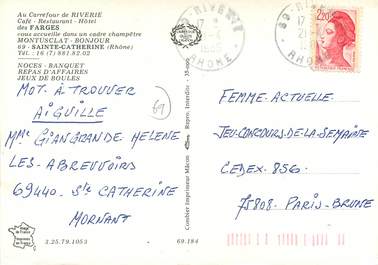 Au Carrefour de RIVERIE
Café - Restaurant - Hôtel
des FARGES
vous accueille dans un cadre champêtre
MONTUSCLAT - BONJOUR
69 - SAINTE-CATHERINE (Rhône)
Tél. : 16 (7) 881.82.02
NOCES - BANQUET
REPAS D'AFFAIRES
JEUX DE BOULES
MOT A TROUVER
AIGUILLE
Mme GIANGRANDE HELENE
LES ABREUVOIRS
69440 Ste CATHERINE
MORNANT
61
Image de France
Imprimé en France
3.25.79.1053
69.184
Combier Imprimeur Mâcon
Repro. Interdite
69-RIVERIE
RHONE
2,20
FEMME ACTUELLE.
JEU-CONCOURS-DE-LA-SEMAINE
CEDEX 856.
75808 - PARIS-BRUNE